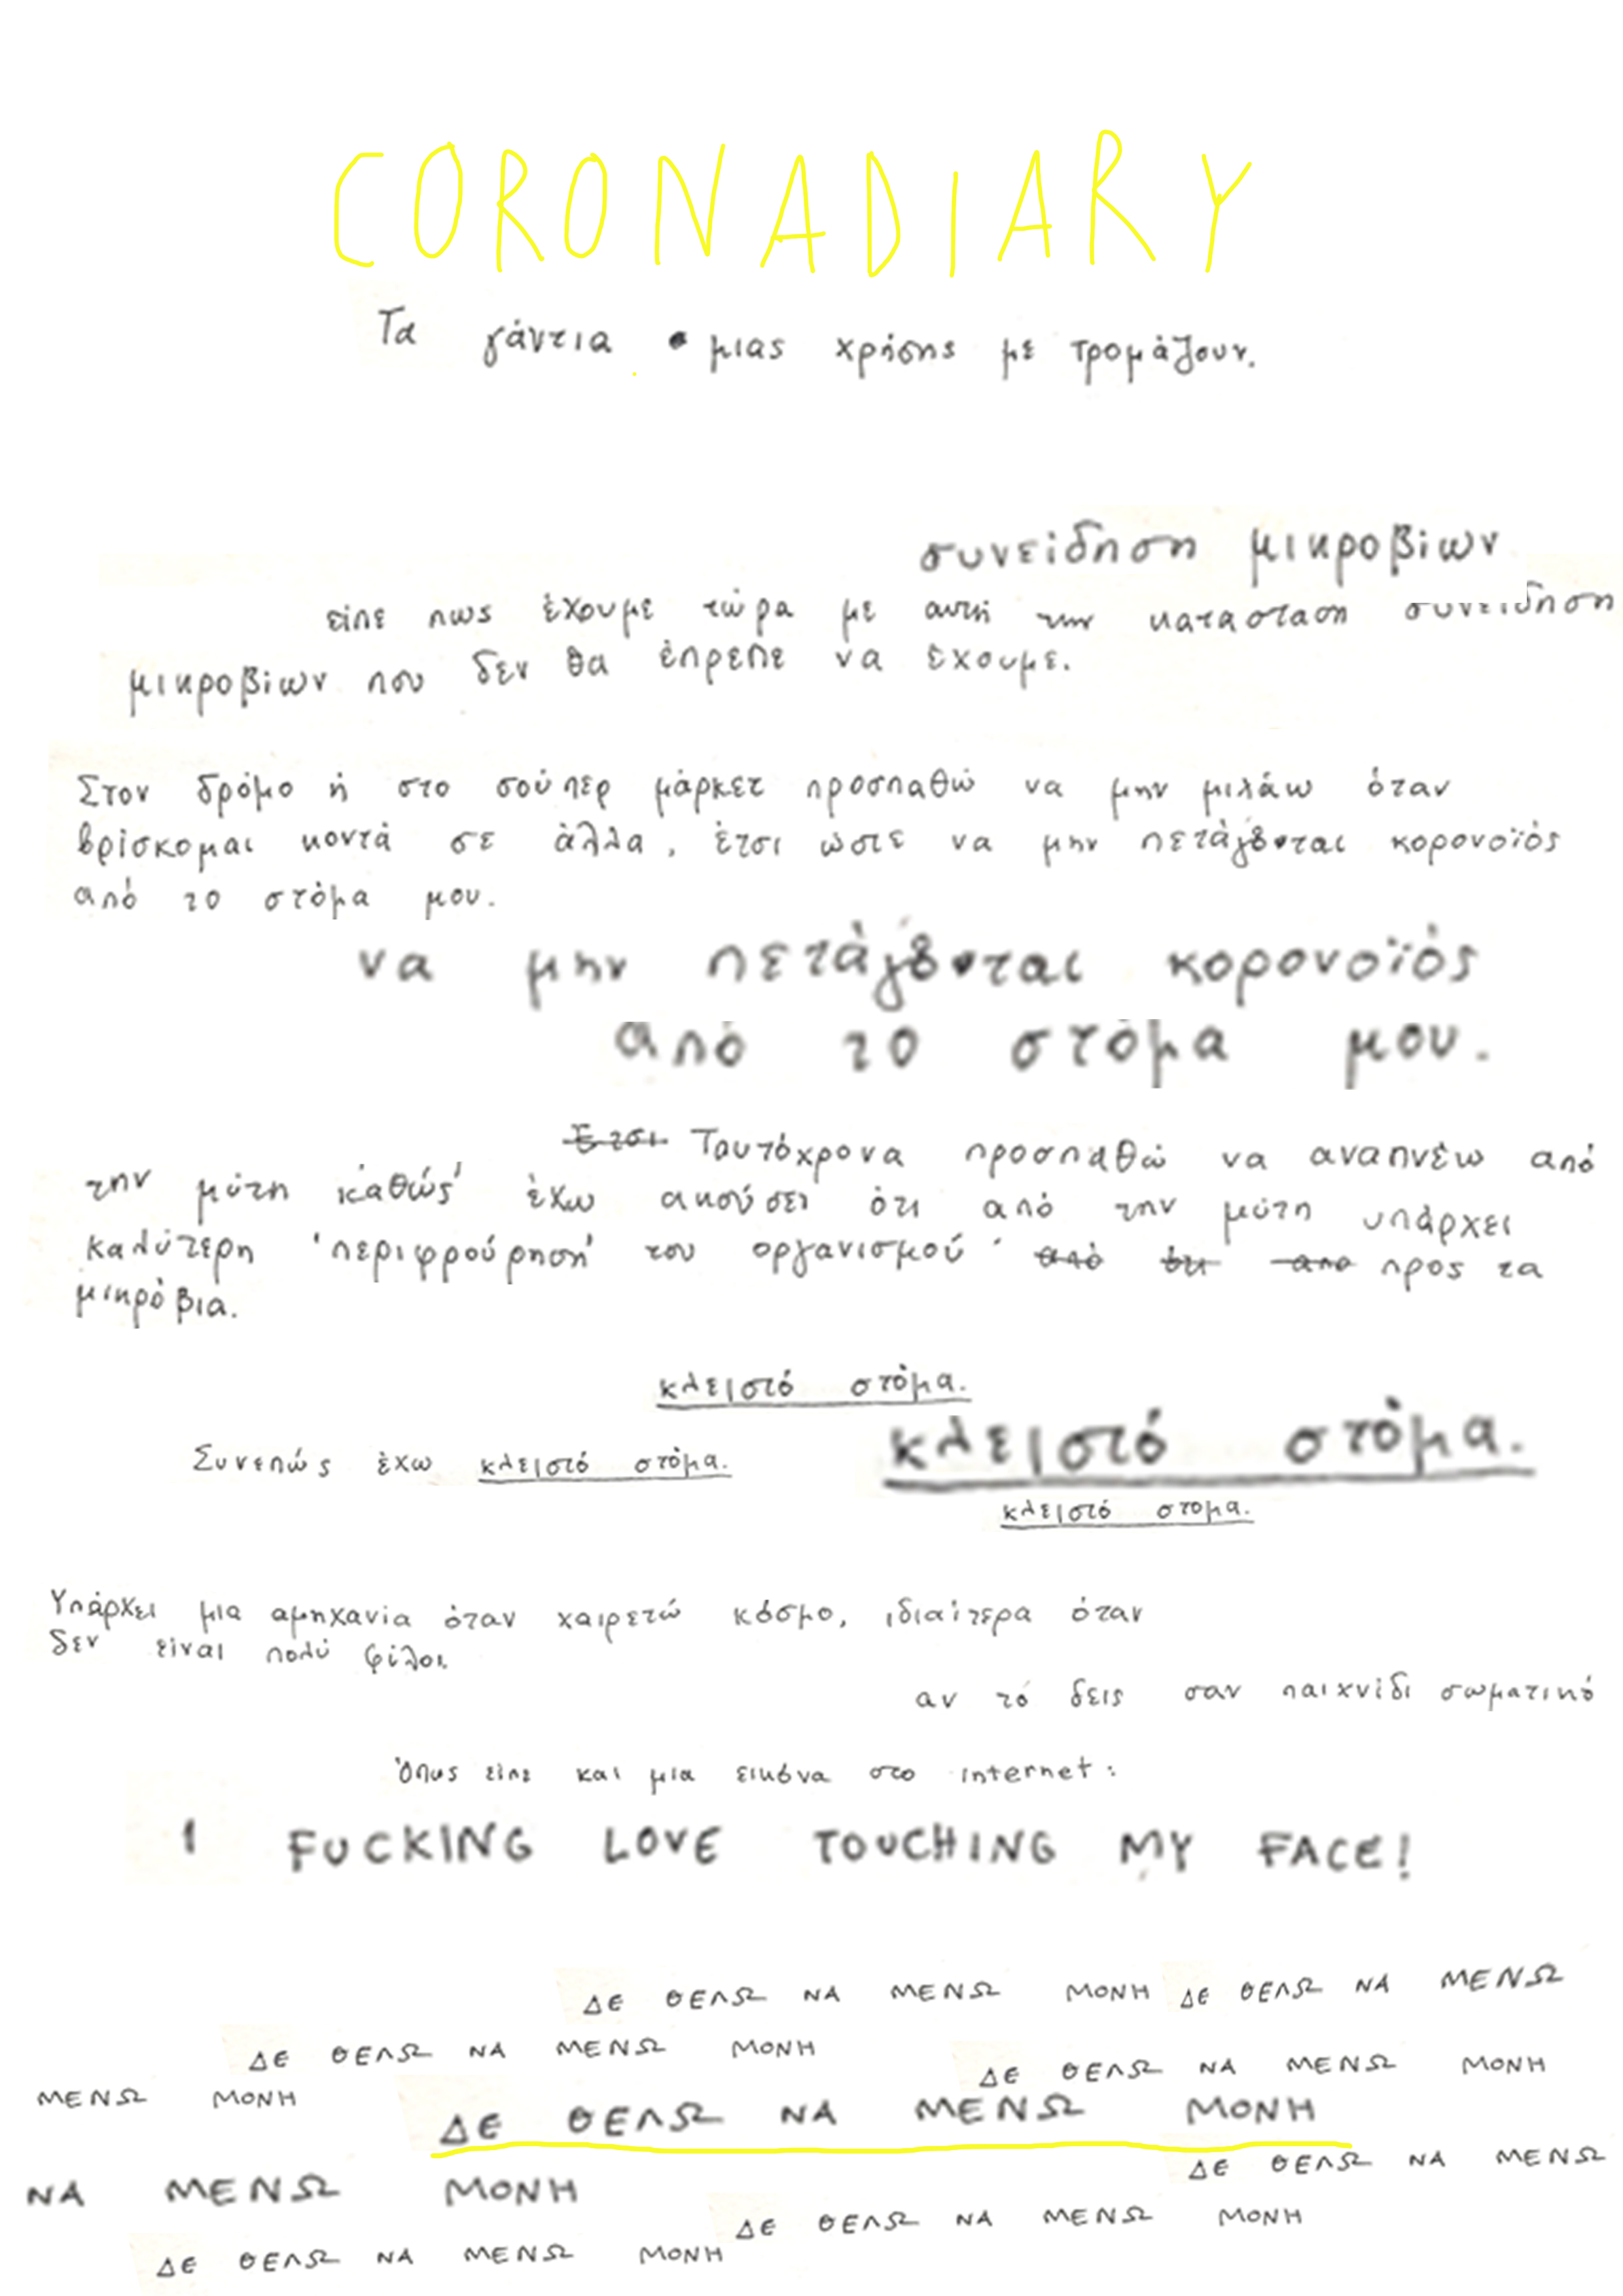 CORONADIARY
Τα γάντια μιας χρήσης με τρομάζουν.
συνείδηση μικροβίων
είπε πως έχουμε τώρα με αυτή την κατασταση συνείδηση
μικροβίων που δεν θα έπρεπε να έχουμε.
Στον δρόμο ή στο σούπερ μάρκετ προσπαθώ να μην μιλάω όταν
βρίσκομαι κοντά σε άλλα, έτσι ώστε να μην κορονοϊός
από το στόμα μου.
να μην κορονοϊός
από το στόμα μου.
Έτσι Ταυτόχρονα προσπαθώ να αναπνέω από
την μύτη καθώς έχω ακούσει ότι από την μύτη υπάρχει
καλύτερη 'περιφρούρηση' του οργανισμού από ότι απο προς τα
μικρόβια.
κλειστό στόμα.
κλειστό στόμα.
Συνεπώς έχω κλειστό στόμα.
κλειστό στομα.
Υπάρχει μια αμηχανία όταν χαιρετώ κόσμο, ιδιαίτερα όταν
δεν είναι πολύ φίλοι.
αν τό δεις σαν παιχνίδι σωματικό
Όπως είπε και μια εικόνα στο internet:
I FUCKING LOVE TOUCHING MY FACE!
ΔΕ ΘΕΛΩ ΝΑ ΜΕΝΩ ΜΟΝΗ ΔΕ ΘΕΛΩ ΝΑ ΜΕΝΩ
ΔΕ ΘΕΛΩ ΝΑ ΜΕΝΩ ΜΟΝΗ
ΔΕ ΘΕΛΩ ΝΑ ΜΕΝΩ ΜΟΝΗ
ΜΕΝΩ ΜΟΝΗ
ΔΕ ΘΕΛΩ ΝΑ ΜΕΝΩ ΜΟΝΗ
ΔΕ ΘΕΛΩ ΝΑ ΜΕΝΩ
ΝΑ ΜΕΝΩ ΜΟΝΗ
ΔΕ ΘΕΛΩ ΝΑ ΜΕΝΩ ΜΟΝΗ
ΔΕ ΘΕΛΩ ΝΑ ΜΕΝΩ ΜΟΝΗ